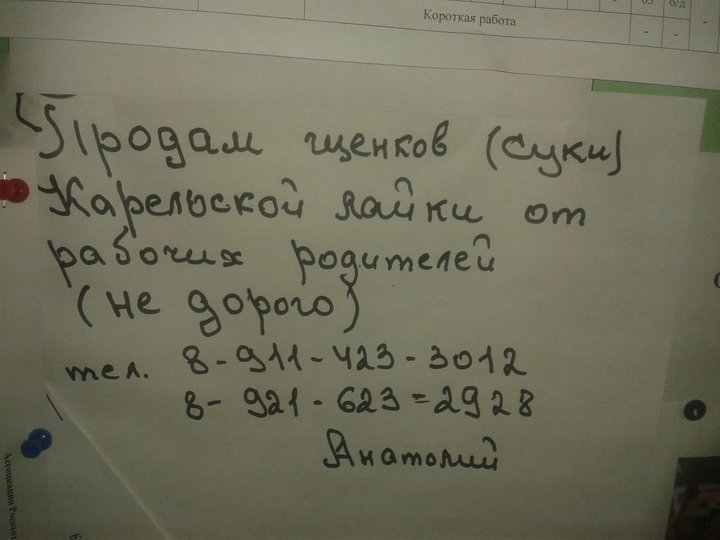 65 б/д
Короткая работа
- - -
Продам щенков (суки)
Карельской лайки от
рабочих родителей
(не дорого)
тел. 8-911-423-3012
8-921-623=2928
Анатолий